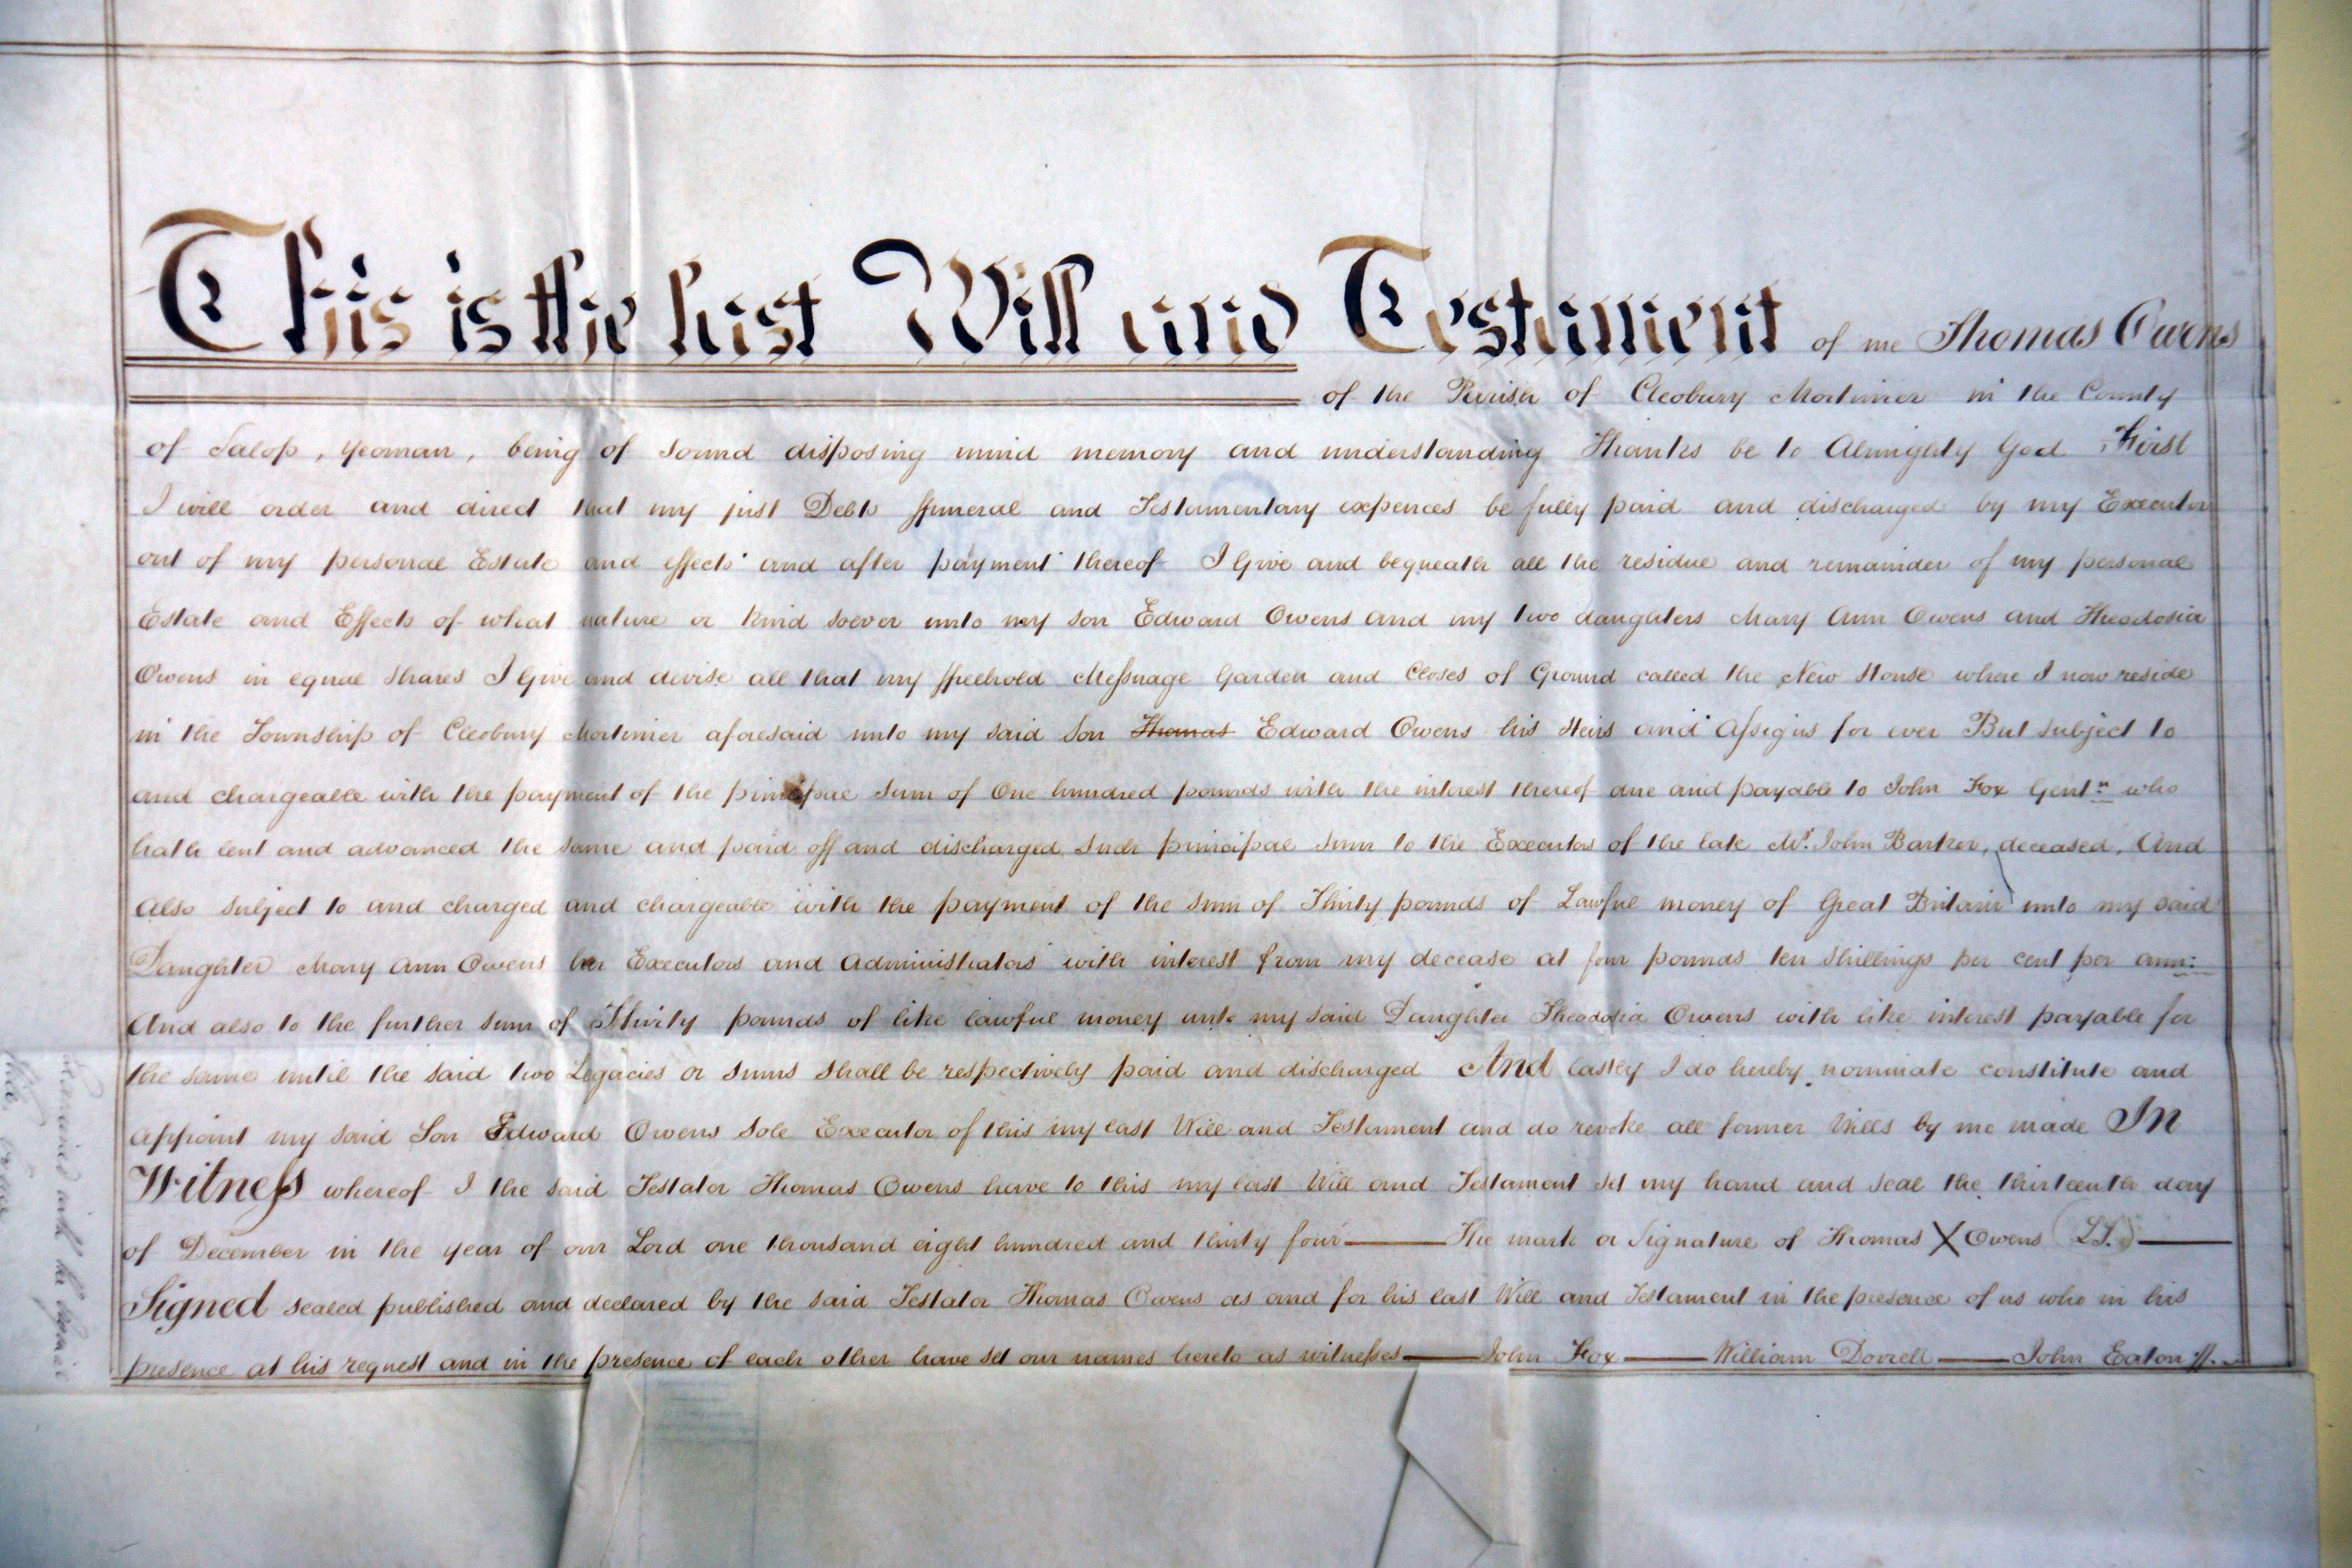 This is the last Will and Testament of me Thomas Owens
of the Parish of Cleobury Mortimer in the County
of Salop, Yeoman, being of sound disposing mind memory and understanding Thanks be to Almighty God First
I will order and direct that my just Debts ffuneral and Testamentary expences be fully paid and discharged by my Executor
out of my personal Estate and effects and after payment thereof I Give and bequeath all the residue and remainder of my personal
Estate and Effects of what nature or kind soever unto my son Edward Owens and my two daughters Mary Ann Owens and Theodosia
Owens in equal shares I Give and devise all that my ffreehold Messuage Garden and Closes of Ground called the New House where I now reside
in the Township of Cleobury Mortimer aforesaid unto my said Son Thomas Edward Owens his Heirs and Assigns for ever But subject to
and chargeable with the payment of the principal sum of One hundred pounds with the interest thereof due and payable to John Fox Gentn who
hath lent and advanced the same and paid off and discharged such principal sum to the Executors of the late Mr. John Barker, deceased, And
also subject to and charged and chargeable with the payment of the sum of Thirty pounds of Lawful money of Great Britain unto my said
Daughter Mary Ann Owens her Executors and Administrators with interest from my decease at four pounds ten shillings per cent per ann:
And also to the further sum of Thirty pounds of like lawful money unto my said Daughter Theodosia Owens with like interest payable for
the same until the said two Legacies or sums shall be respectively paid and discharged And lastly I do hereby nominate constitute and
appoint my said Son Edward Owens Sole Executor of this my last Will and Testament and do revoke all former Wills by me made In
Witness whereof I the said Testator Thomas Owens have to this my last Will and Testament set my hand and seal the thirteenth day
of December in the year of our Lord one thousand eight hundred and thirty four — The mark or Signature of Thomas X Owens (LS.) —
Signed sealed published and declared by the said Testator Thomas Owens as and for his last Will and Testament in the presence of us who in his
presence at his request and in the presence of each other have set our names hereto as witnesses — John Fox — William Dorrell — John Eaton